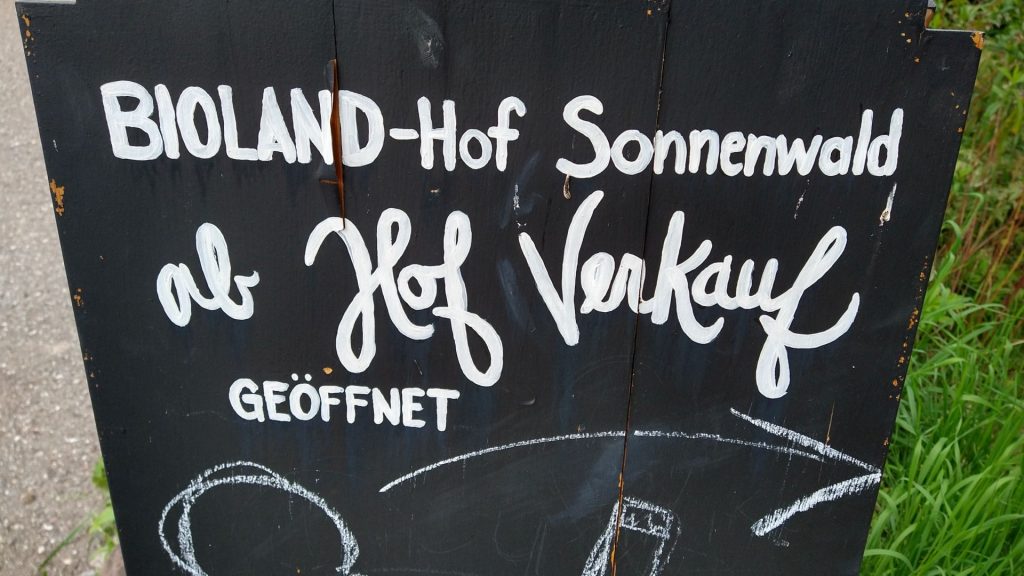 BIOLAND-Hof Sonnenwald
ab Hof Verkauf
GEÖFFNET